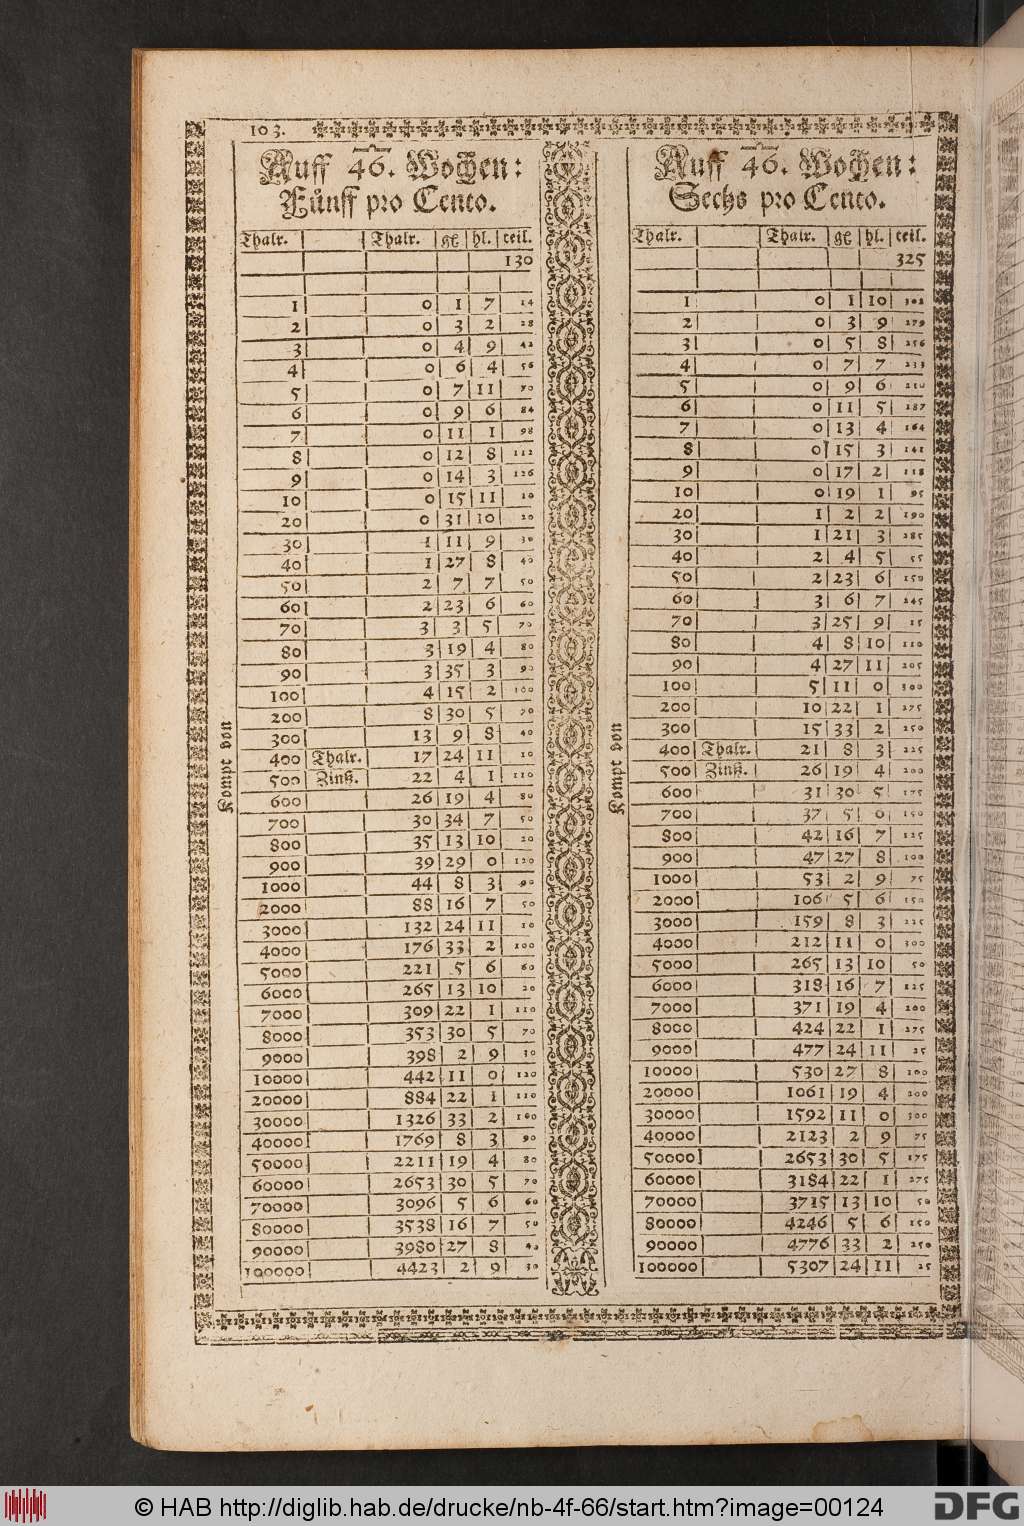 103.
Auff 46. Wochen:
Fünff pro Cento.
Thalr. Thalr. gl hl. teil.
130
1 0 1 7 14
2 0 3 2 28
3 0 4 9 42
4 0 6 4 56
5 0 7 11 70
6 0 9 6 84
7 0 11 1 98
8 0 12 8 112
9 0 14 3 126
10 0 15 11 10
20 0 31 10 20
30 1 11 9 30
40 1 27 8 40
50 2 7 7 50
60 2 23 6 60
70 3 3 5 70
80 3 19 4 80
90 3 35 3 90
100 4 15 2 100
200 8 30 5 70
300 13 9 8 40
400 Thalr. 17 24 11 10
500 Zinß. 22 4 1 110
600 26 19 4 80
700 30 34 7 50
800 35 13 10 20
900 39 29 0 120
1000 44 8 3 90
2000 88 16 7 50
3000 132 24 11 10
4000 176 33 2 100
5000 221 5 6 60
6000 265 13 10 20
7000 309 22 1 110
8000 353 30 5 70
9000 398 2 9 30
10000 442 11 0 120
20000 884 22 1 110
30000 1326 33 2 100
40000 1769 8 3 90
50000 2211 19 4 80
60000 2653 30 5 70
70000 3096 5 6 60
80000 3538 16 7 50
90000 3980 27 8 40
100000 4423 2 9 30
Kompt von
Auff 46. Wochen:
Sechs pro Cento.
Thalr. Thalr. gl hl. teil.
325
1 0 1 10 302
2 0 3 9 279
3 0 5 8 256
4 0 7 7 233
5 0 9 6 210
6 0 11 5 187
7 0 13 4 164
8 0 15 3 141
9 0 17 2 118
10 0 19 1 95
20 1 2 2 190
30 1 21 3 285
40 2 4 5 55
50 2 23 6 150
60 3 6 7 245
70 3 25 9 15
80 4 8 10 110
90 4 27 11 205
100 5 11 0 300
200 10 22 1 275
300 15 33 2 250
400 Thalr. 21 8 3 225
500 Zinß. 26 19 4 200
600 31 30 5 175
700 37 5 6 150
800 42 16 7 125
900 47 27 8 100
1000 53 2 9 75
2000 106 5 6 150
3000 159 8 3 225
4000 212 11 0 300
5000 265 13 10 50
6000 318 16 7 125
7000 371 19 4 200
8000 424 22 1 275
9000 477 24 11 25
10000 530 27 8 100
20000 1061 19 4 200
30000 1592 11 0 300
40000 2123 2 9 75
50000 2653 30 5 175
60000 3184 22 1 275
70000 3715 13 10 50
80000 4246 5 6 150
90000 4776 33 2 250
100000 5307 24 11 25
Kompt von
© HAB http://diglib.hab.de/drucke/nb-4f-66/start.htm?image=00124
DFG